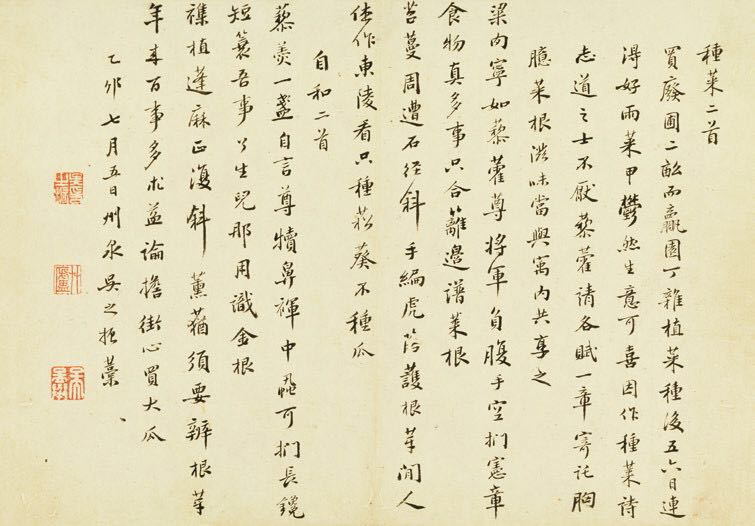 種菜二首
買廢圃二畝而贏園丁雜植菜種後五六日連
淂好雨菜甲鬱然生意可喜因作種菜詩
志道之士不厭藜藿請各賦一章寄託胸
臆菜根滋味當與寓内共享之
梁肉寧如藜藿尊將軍負腹手空捫憲章
食物真多事只合籬邊譜菜根
苔蔓周遭石徑斜手編虎落護根芽閒人
休作東陵看只種菘葵不種瓜
自和二首
藜羹一盞自言尊犢鼻褌中虱可捫長鑱
短蓑吾事了生兒那用識金根
襍植蓬麻正復斜薰蕕須要辨根芽
年來百事多求益論擔街心買大瓜
乙卯七月五日州泉吳之振藁